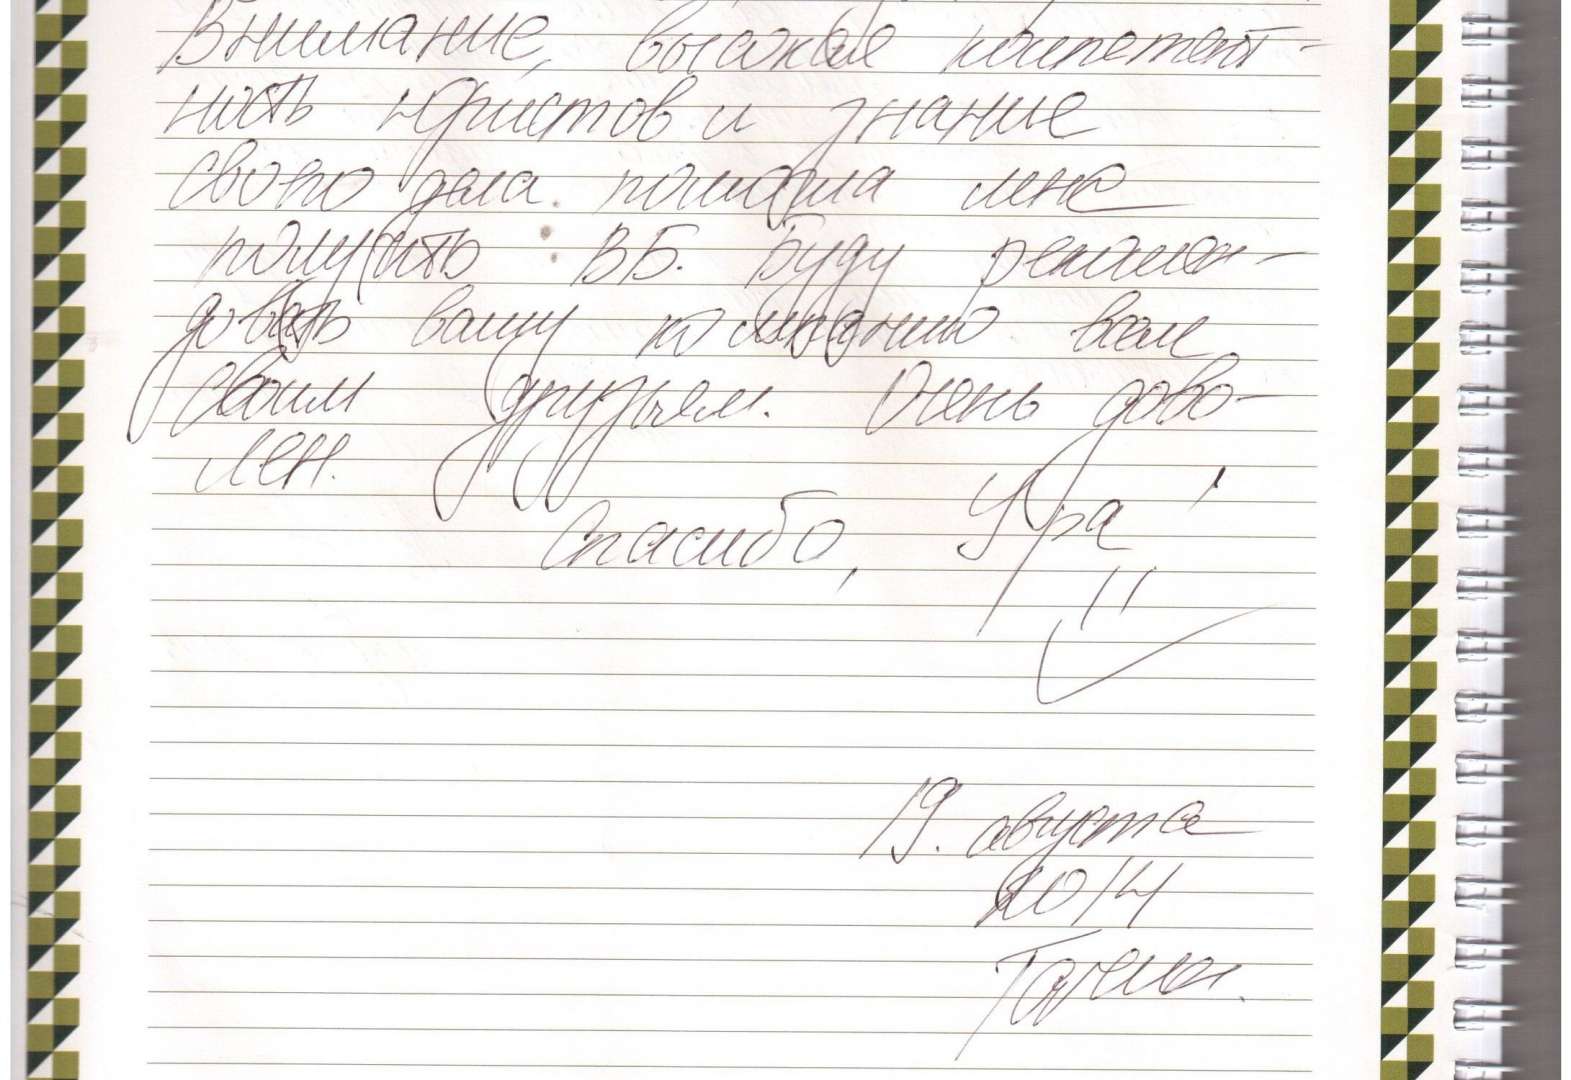 Внимание, высокая компетент-
ность юристов и знание
своего дела помогла мне
получить ВБ. Буду рекомен-
довать вашу компанию всем
своим друзьям. Очень дово-
лен.
Спасибо, Ура!
19. августа
2014